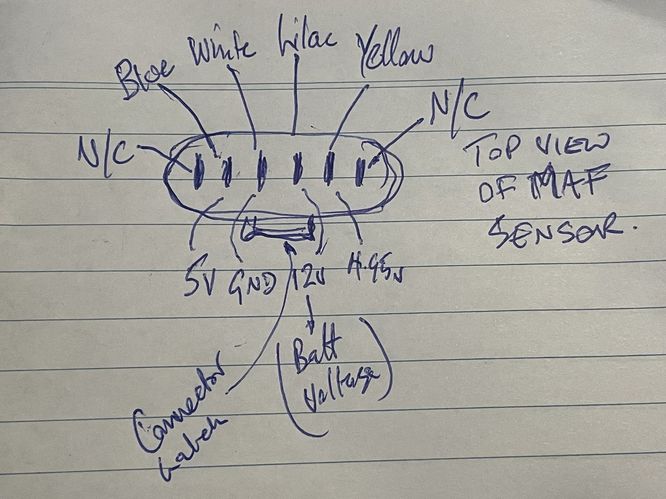 Blue White Lilac Yellow
N/C N/C
TOP VIEW
OF MAF
SENSOR.
5V GND 12V 4.95v
(Batt
Voltage)
Connector